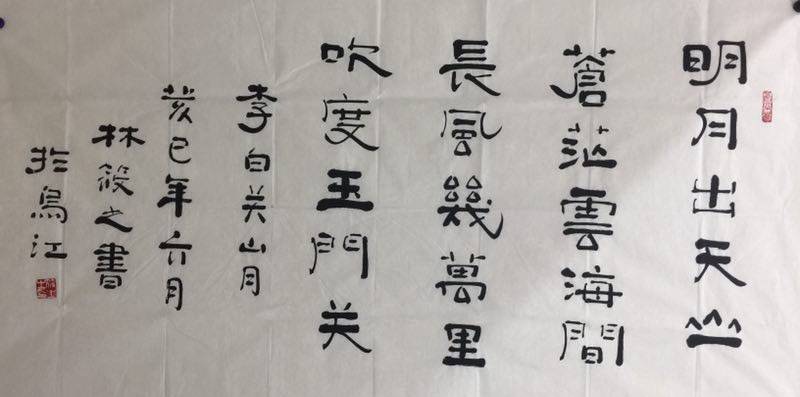 明月出天山
蒼茫雲海間
長風幾萬里
吹度玉門关
李白关山月
癸巳年六月
林筱之書
扵烏江